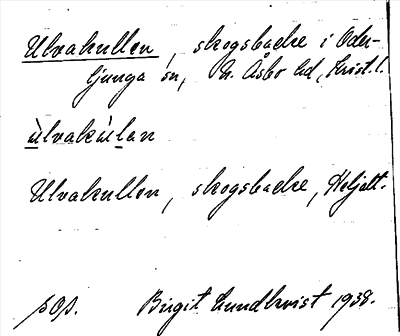 Ulvakullen, skogsbacke i Oder-
ljunga sn, N. Åsbo hd, Krist. l.
ùlvakùlan
Ulvakullen, skogsbacke,
pop. Birgit Lundkvist 1938.